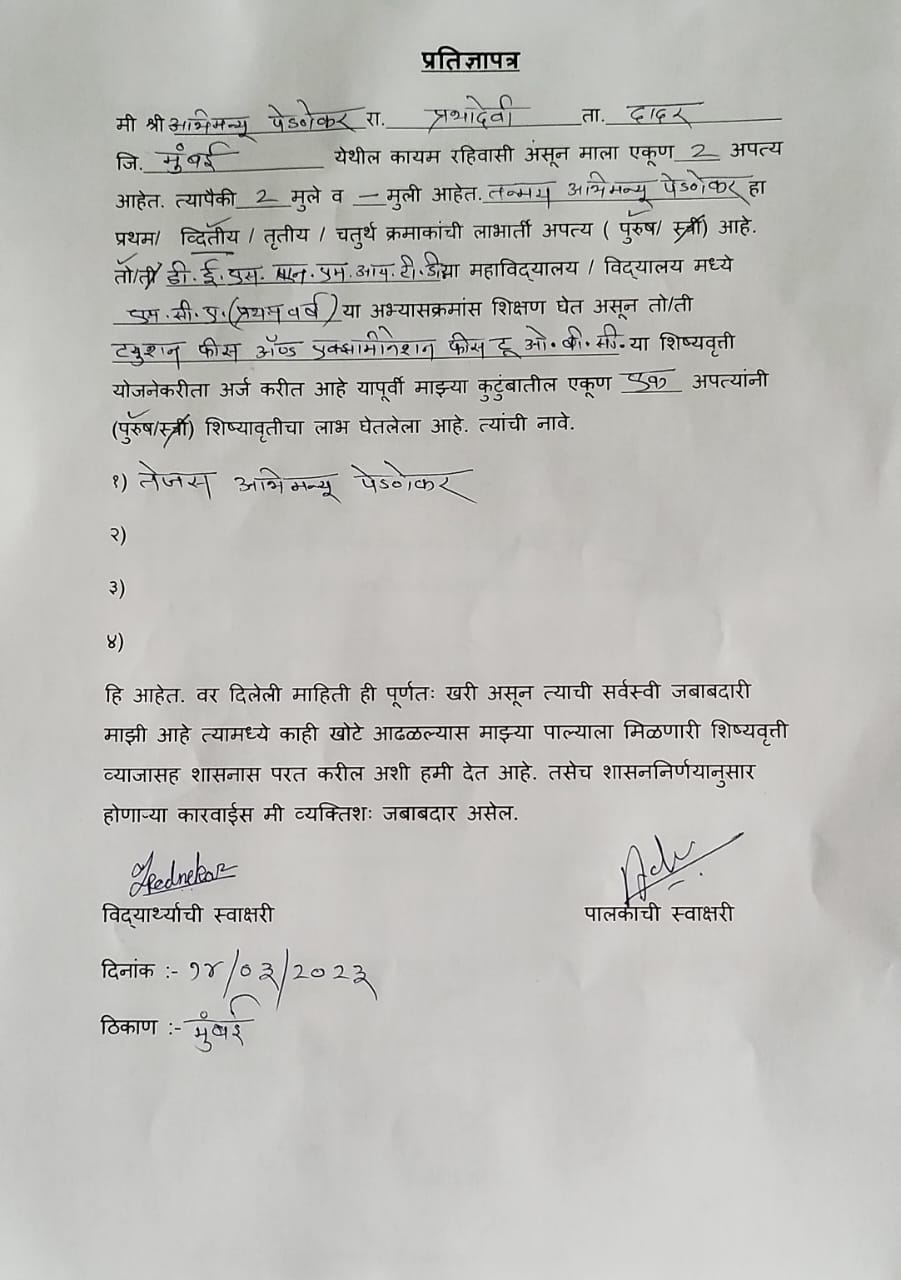 प्रतिज्ञापत्र
मी श्री अभिमन्यू पेडणेकर रा. प्रभादेवी ता. दादर
जि. मुंबई येथील कायम रहिवासी अंसून माला एकूण 2 अपत्य
आहेत. त्यापैकी 2 मुले व – मुली आहेत. तन्मय अभिमन्यू पेडणेकर हा
प्रथम/ व्दितीय / तृतीय / चतुर्थ क्रमाकांची लाभार्ती अपत्य ( पुरुष/ स्त्री) आहे.
तो/ती डी. ई. एस. एन. एम. आय. टी. डी या महाविद्यालय / विद्यालय मध्ये
एम. सी. ए. (प्रथम वर्ष) या अभ्यासक्रमांस शिक्षण घेत असून तो/ती
ट्युशन फीस अ‍ॅण्ड एक्सामीनेशन फीस टू ओ. बी. सी. या शिष्यवृत्ती
योजनेकरीता अर्ज करीत आहे यापूर्वी माझ्या कुटुंबातील एकूण एक अपत्यांनी
(पुरुष/स्त्री) शिष्यावृतीचा लाभ घेतलेला आहे. त्यांची नावे.
१) तेजस अभिमन्यू पेडणेकर
२)
३)
४)
हि आहेत. वर दिलेली माहिती ही पूर्णतः खरी असून त्याची सर्वस्वी जबाबदारी
माझी आहे त्यामध्ये काही खोटे आढळल्यास माझ्या पाल्याला मिळणारी शिष्यवृत्ती
व्याजासह शासनास परत करील अशी हमी देत आहे. तसेच शासननिर्णयानुसार
होणाऱ्या कारवाईस मी व्यक्तिशः जबाबदार असेल.
विद्यार्थ्याची स्वाक्षरी पालकाची स्वाक्षरी
दिनांक :- १४/०३/२०२३
ठिकाण :- मुंबई